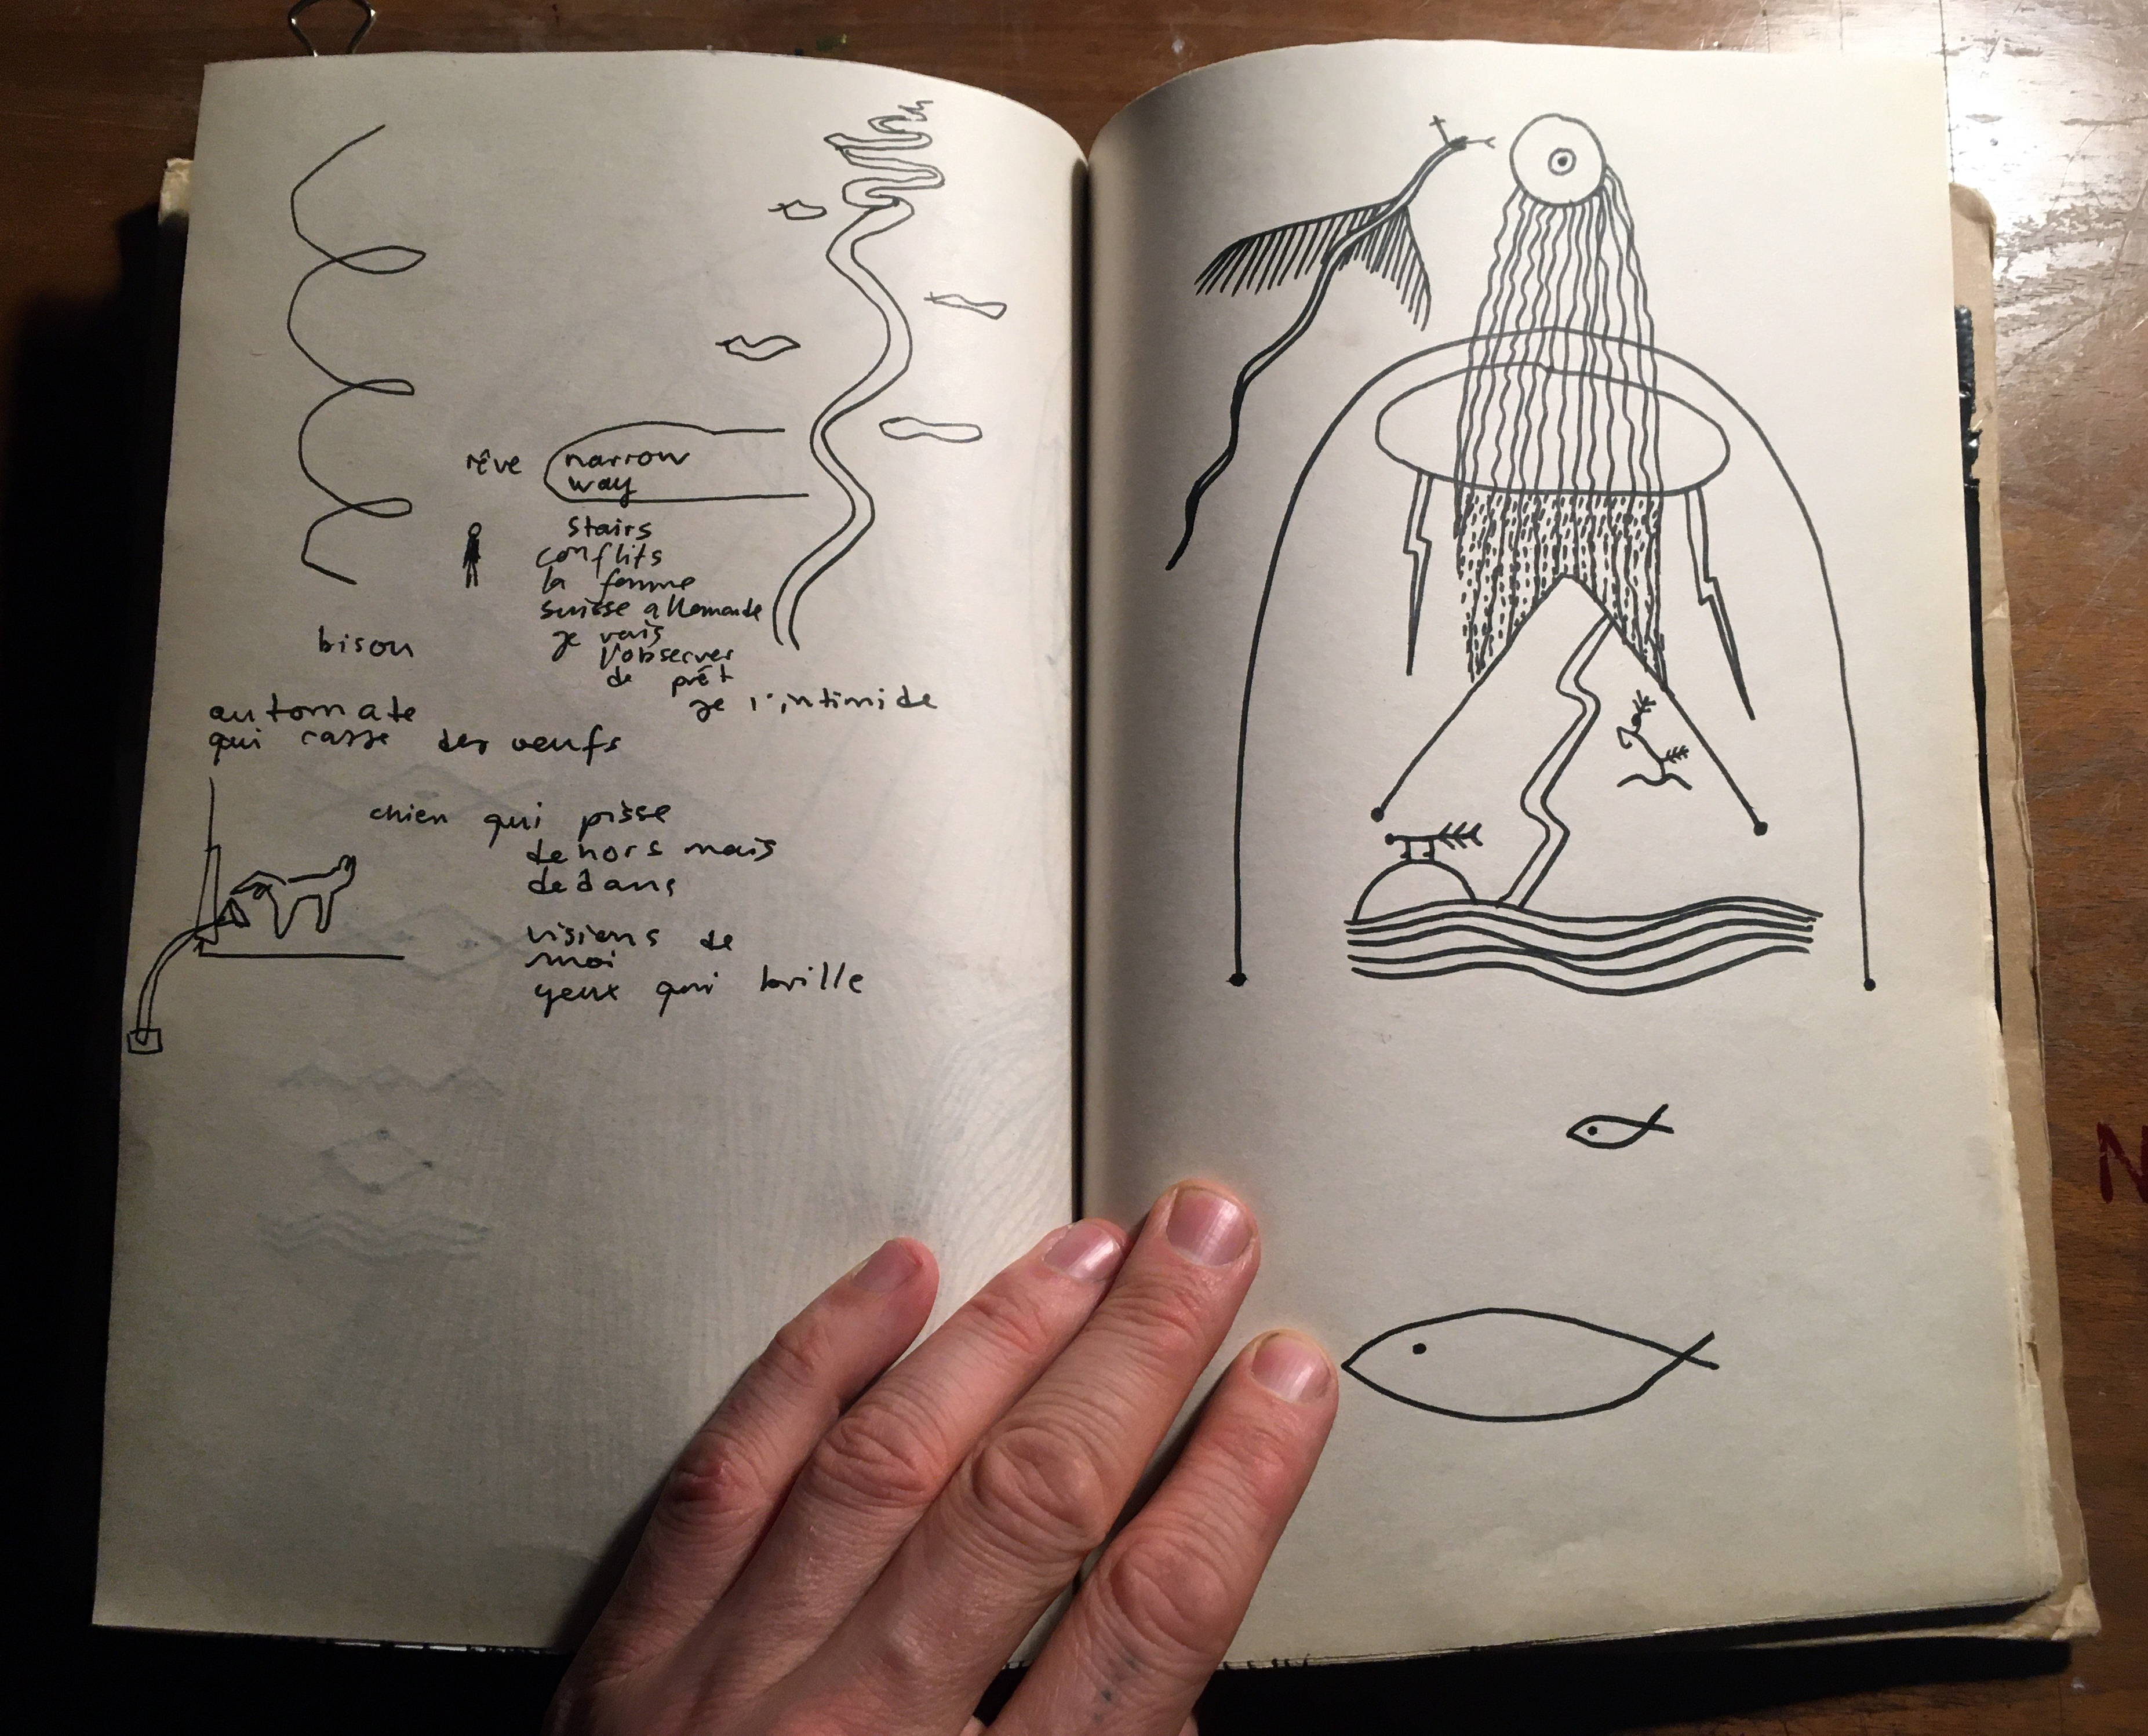 rêve
narrow
way
stairs
conflits
la femme
suisse allemande
je vais
l'observer
de prêt
je l'intimide
bison
automate
qui casse des oeufs
chien qui pisse
dehors mais
dedans
visions de
moi
yeux qui brille
N